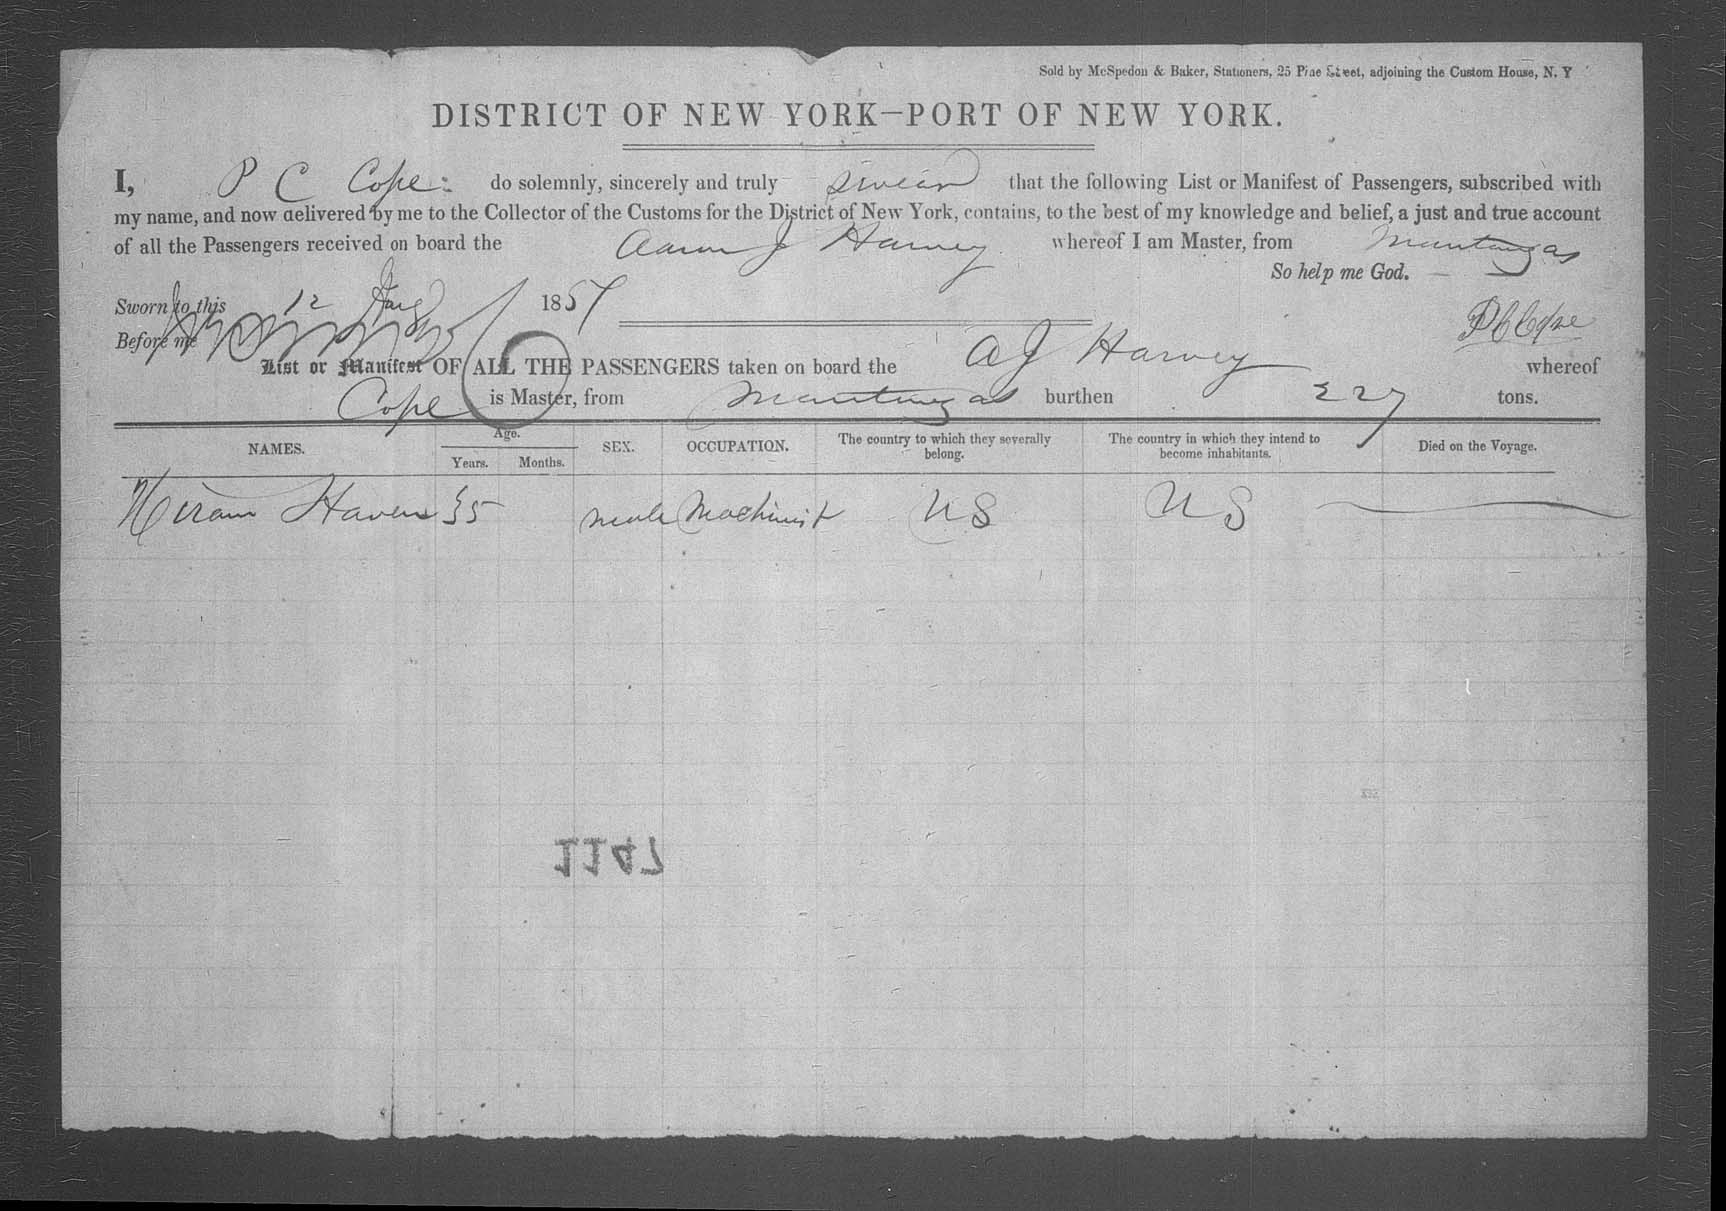 Sold by McSpedon & Baker, Stationers, 25 Pine Street, adjoining the Custom House, N. Y
DISTRICT OF NEW YORK—PORT OF NEW YORK.
I, P C Cope do solemnly, sincerely and truly swear that the following List or Manifest of Passengers, subscribed with
my name, and now delivered by me to the Collector of the Customs for the District of New York, contains, to the best of my knowledge and belief, a just and true account
of all the Passengers received on board the Aaron J Harvey whereof I am Master, from Mantanzas
So help me God.
Sworn to this 12 1857
P C Cope
Before me
List or Manifest OF ALL THE PASSENGERS taken on board the A J Harvey whereof
Cope is Master, from Mantanzas burthen 227 tons.
NAMES. Age. Years. Months. SEX. OCCUPATION. The country to which they severally belong. The country in which they intend to become inhabitants. Died on the Voyage.
Hiram Haven 35 male Machinist US US
1147